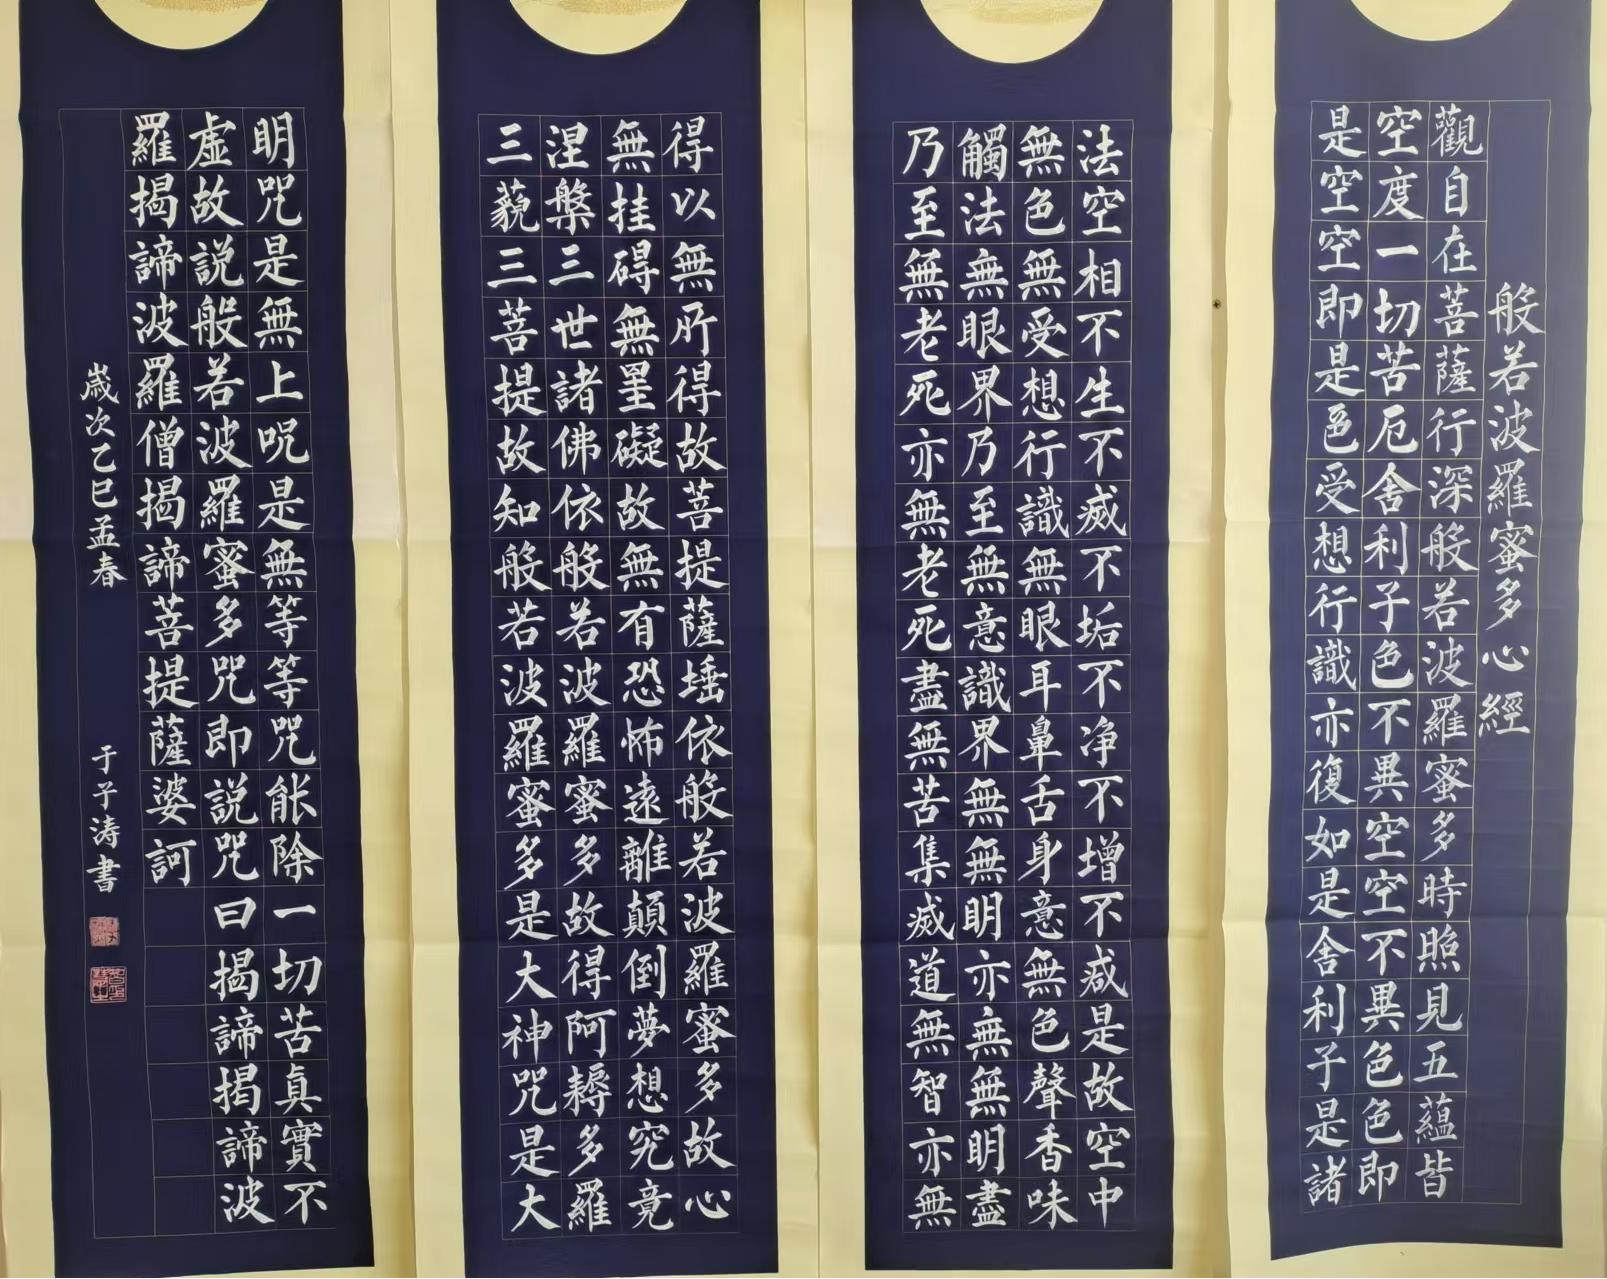 般若波羅蜜多心經
觀自在菩薩行深般若波羅蜜多時照見五蘊皆
空度一切苦厄舍利子色不異空空不異色色即
是空空即是色受想行識亦復如是舍利子是諸
法空相不生不滅不垢不净不增不減是故空中
無色無受想行識無眼耳鼻舌身意無色聲香味
觸法無眼界乃至無意識界無無明亦無無明盡
乃至無老死亦無老死盡無苦集滅道無智亦無
得以無所得故菩提薩埵依般若波羅蜜多故心
無挂碍無罣礙故無有恐怖遠離顛倒夢想究竟
涅槃三世諸佛依般若波羅蜜多故得阿耨多羅
三藐三菩提故知般若波羅蜜多是大神咒是大
明咒是無上咒是無等等咒能除一切苦真實不
虛故説般若波羅蜜多咒即説咒曰揭諦揭諦波
羅揭諦波羅僧揭諦菩提薩婆訶
歲次乙巳孟春 于子涛書